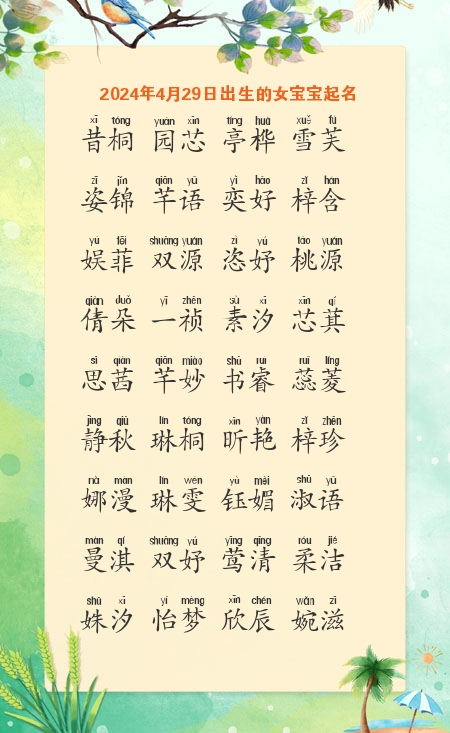 2024年4月29日出生的女宝宝起名
xī tóng yuán xīn tíng huà xuě fú
昔桐 园芯 亭桦 雪芙
zī jǐn qiān yǔ yì hǎo zǐ hán
姿锦 芊语 奕好 梓含
yú fēi shuāng yuán zì yú táo yuán
娱菲 双源 恣妤 桃源
qiàn duǒ yī zhēn sù xī xīn qí
倩朵 一祯 素汐 芯萁
sī qiàn qiān miào shū ruì ruǐ líng
思茜 芊妙 书睿 蕊菱
jìng qiū lín tóng xīn yàn zǐ zhēn
静秋 琳桐 昕艳 梓珍
nà màn lín wén yù mèi shū yǔ
娜漫 琳雯 钰媚 淑语
màn qí shuāng yú yīng qīng róu jié
曼淇 双妤 莺清 柔洁
shū xī yí mèng xīn chén wǎn zī
姝汐 怡梦 欣辰 婉滋